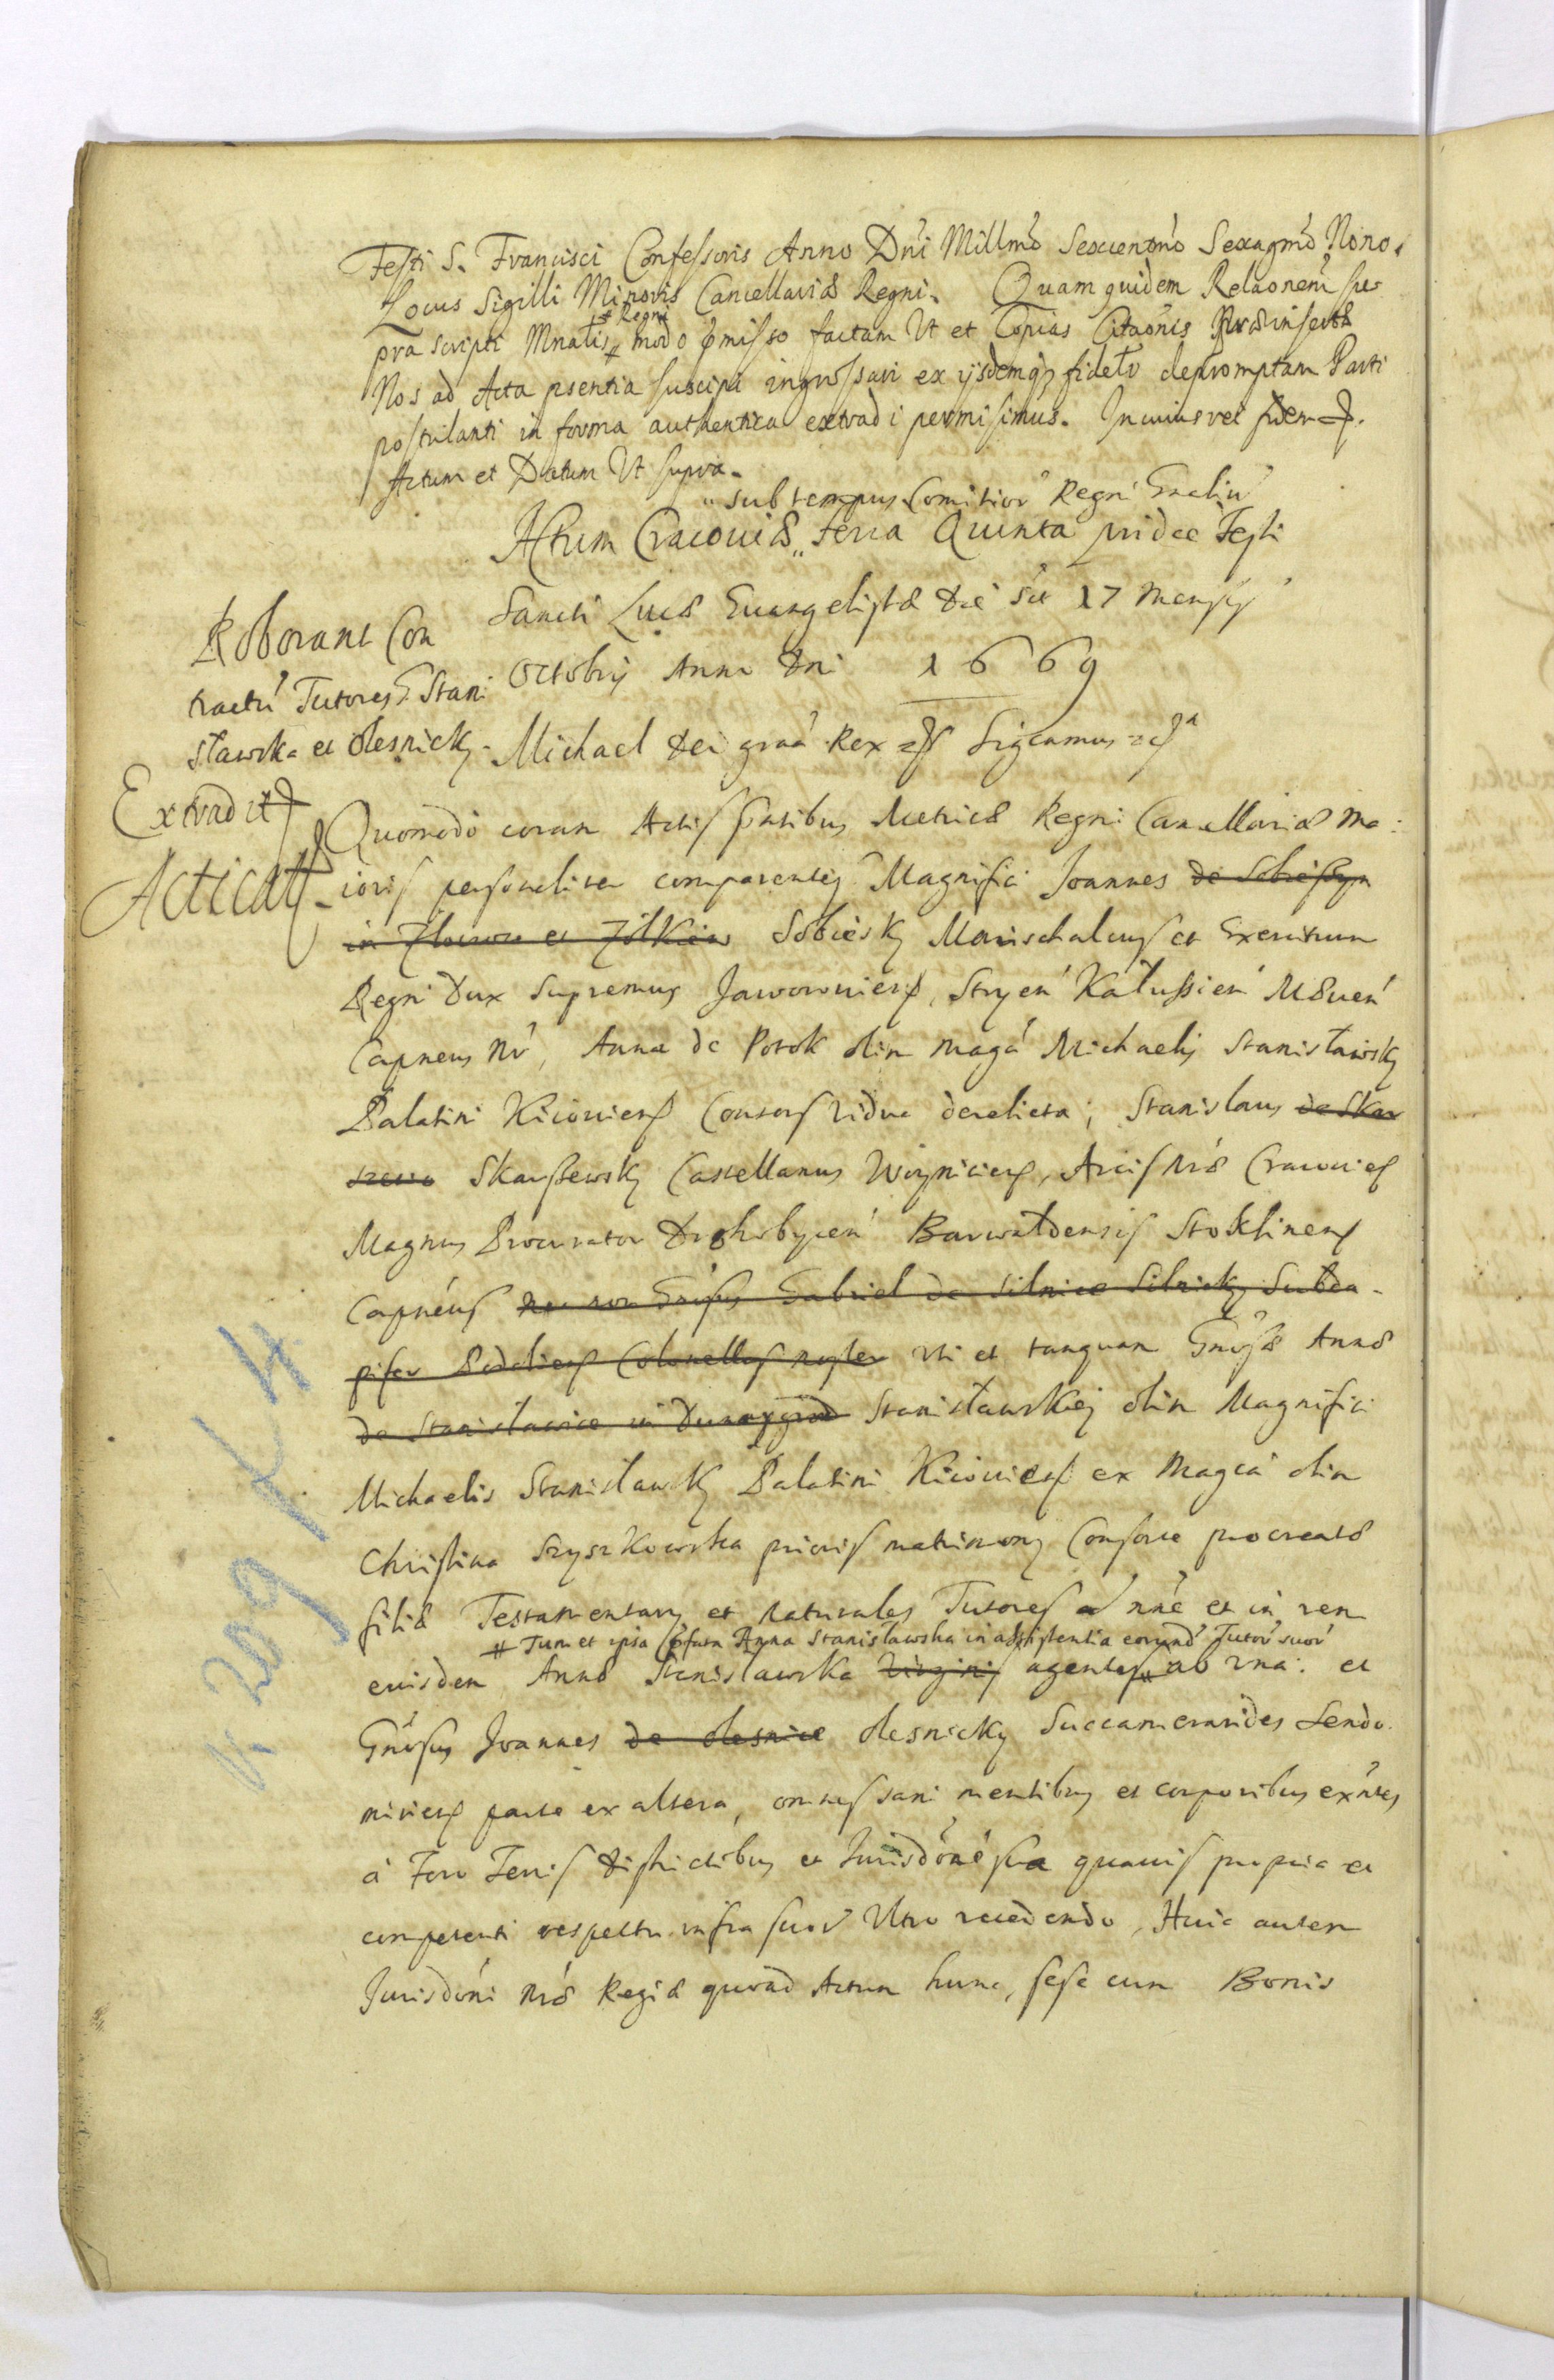 Festi S. Francisci Confessoris Anno Dni Millmo Sexcentmo Sexagmo Nono.
Locus Sigilli Minoris Cancellariæ Regni. Quam quidem Relaonem su-
# Regni
pra scripti Mnalis # modo pmisso factam Ut et Copias Citaonis insertæ
Nos ad Acta psentia suscipi ingrossari ex ijsdemq fideltr depromptam Parti
postulanti in forma authentica extradi permisimus. In cuius rei fidem
Actum et Datum Ut supra.
"sub tempus Comitior Regni Gnaliu
Actum Cracoviæ" Feria Quinta pridie Festi
Sancti Lucæ Evangelistæ die scu 17 Mensis
Octobris Anno Dni 1669
Roborant Con
tractu Tutores G Stani
sławska et Olesnicky.
Michael Dei graa Rex Sigcamus
Extradit
Acticatt
Quomodo coram Actis pntibus Metricæ Regni Cancellariæ Ma:
ioris personaliter comparentes Magnifici Joannes de Sobieszyn
in Złoczow et Zołkiew Sobiesky Marischalcus et Exercituum
Regni Dux Supremus Javoroviens, Stryen Kałussien
Capneus Nr, Anna de Potok olim Magci Michaelis Stanisławsky
Palatini Kiioviens Consors vidua derelicta; Stanislaus de Skar
szewo Skarszewsky Castellanus Woyniciens, Arcis Nræ Cracovien
Magnus Procurator Drohobycen Barwałdensis Stoklinens
Capneus nec non Gnosus Gabriel de Silnice Silnicky Subda-
pifer Podoliens Colonellus noster uti et tanquam Gnosæ Annæ
de Stanisławice in Dunaygrod Stanisławskiej olim Magnifici
Michaelis Stanisławsky Palatini Kiioviens ex Magca olim
Christina Szyszkowska prioris matrimonij Consorte procreatæ
filiæ Testamentarij et Naturales Tutores ac nne et in rem
# Tum et ipsa pfata Anna Stanisławska in assistentia eorund Tutor suor
eiusdem Annæ Stanisławska Virginis agentes # ab una: et
Gnosus Joannes de Olesnice Olesnicky Succamerarides Sendo
miriens parte ex altera, omnes sani mentibus et corporibus exntes
à Foro Terris Districtibus et Jurisdone sua quavis propria et
competenti respectu infrascor Ultro recedendo, Huic autem
Jurisdoni Nræ Regiæ quoad Actum hunc, sese cum Bonis
k 209 t 4